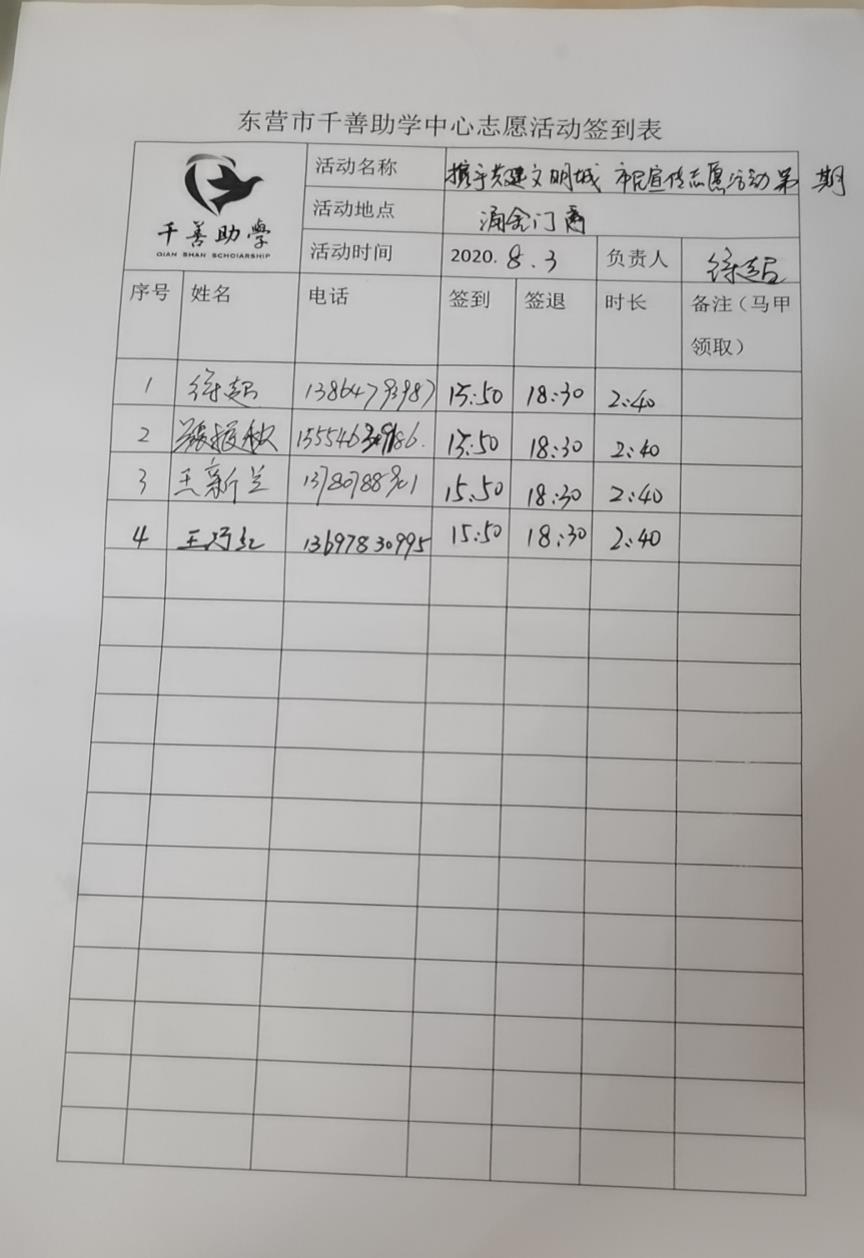 东营市千善助学中心志愿活动签到表
千善助學
QIAN SHAN SCHOLARSHIP
活动名称 携手共建文明城 市民宣传志愿活动第 期
活动地点 涌金门
活动时间 2020.8.3 负责人 徐超
序号 姓名 电话 签到 签退 时长 备注（马甲领取）
1 徐超 15:50 18:30 2:40
2 15:50 18:30 2:40
3 王新兰 15:50 18:30 2:40
4 王巧红 13697830995 15:50 18:30 2:40